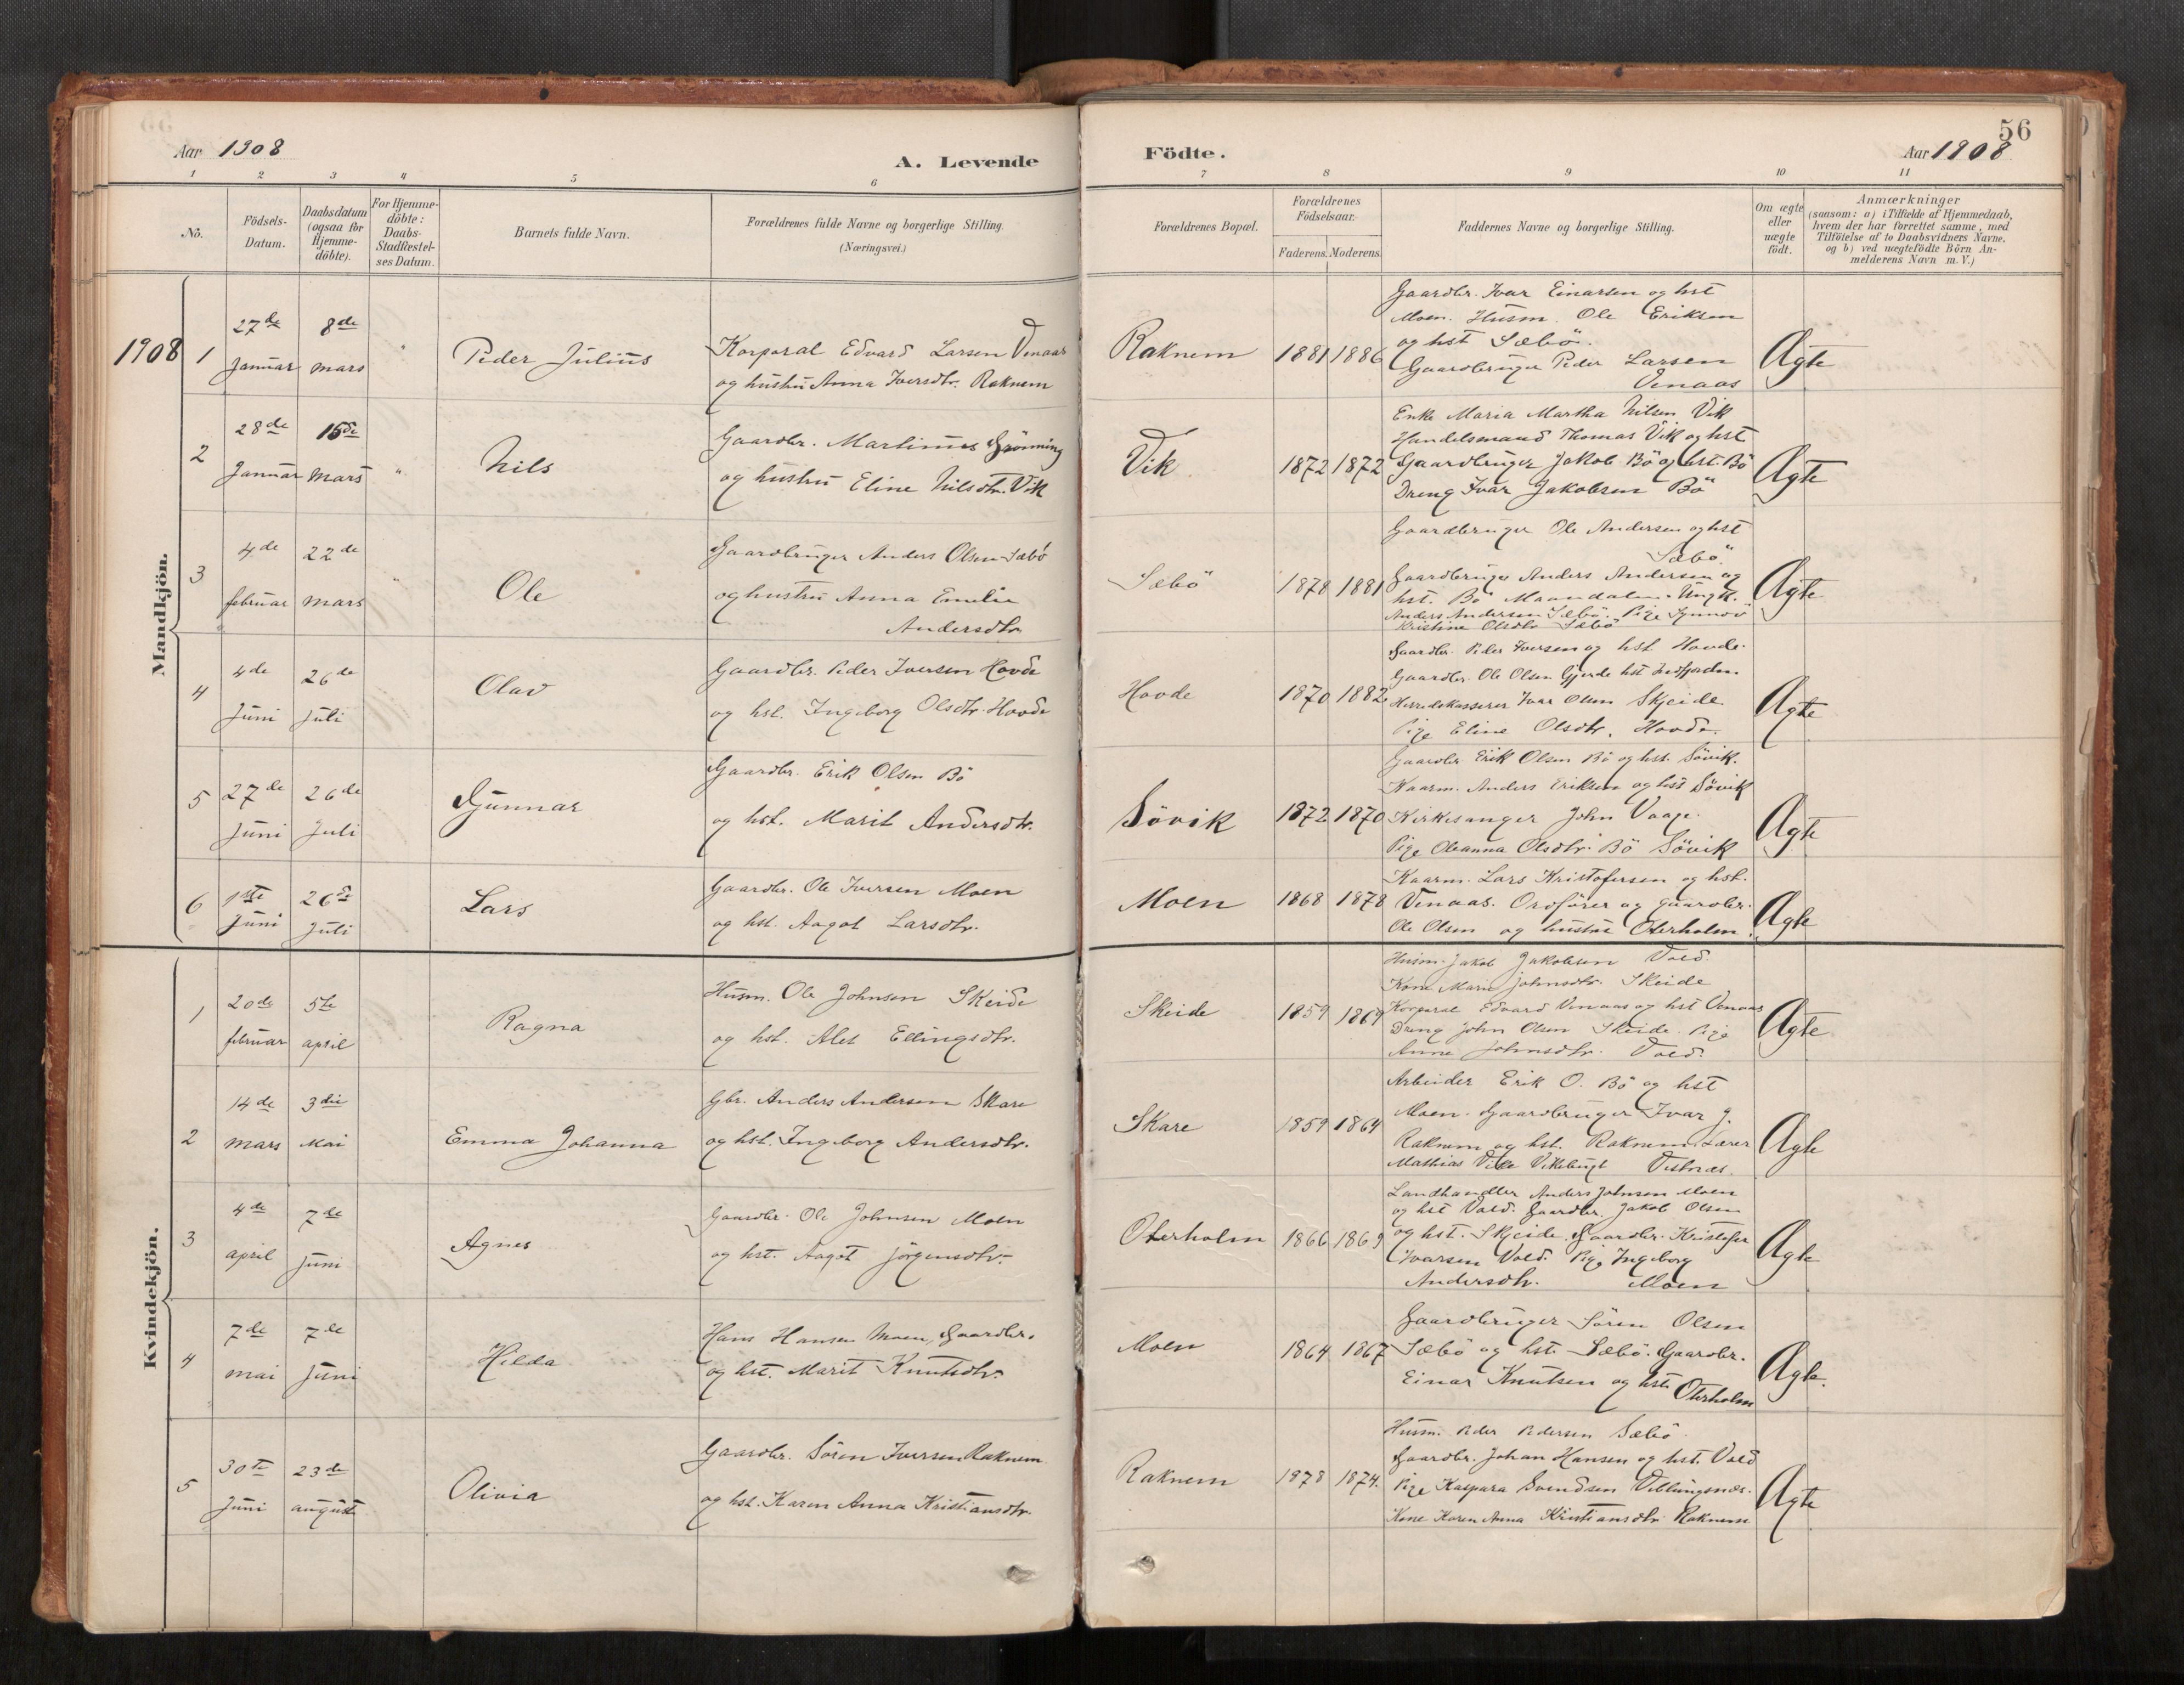 Aar 1908
A. Levende
Födte.
Aar 1908
56
1 2 3 4 5 6 7 8 9 10 11
No.
Födsels-Datum.
Daabsdatum (ogsaa for Hjemme-döbte).
For Hjemme-döbte: Daabs-Stadfæstel-ses Datum.
Barnets fulde Navn.
Forældrenes fulde Navne og borgerlige Stilling.
(Næringsvei.)
Forældrenes Bopæl.
Forældrenes Födselsaar.
Faderens. Moderens.
Faddernes Navne og borgerlige Stilling.
Om ægte eller uægte födt.
Anmærkninger
(saasom: a) i Tilfælde af Hjemmedaab,
hvem der har forrettet samme, med
Tilföielse af to Daabsvidners Navne,
og b) ved uægtefödte Börn An-
melderens Navn m. V.)
Mandkjön.
1908
1
27de Januar
8de mars
"
Peder Julius
Korporal Edvard Larsen Venaas
og hustru Anna Iversdtr. Raknem
Raknem
1881 1886
Gaardbr. Ivar Einarsen og hst
Moen. Husm. Ole Eriksen
og hst Sæbö.
Gaardbruger Peder Larsen
Venaas
Ægte
2
28de Januar
15de mars
"
Nils
Gaardbr. Martinus Grönning
og hustru Eline Nilsdtr. Vik
Vik
1872 1872
Enke Maria Martha Nilsen Vik
Handelsmand Thomas Vik og hst
Gaardbruger Jakob Bö og hst. Bö
Dreng Ivar Jakobsen Bö
Ægte
3
4de februar
22de mars
"
Ole
Gaardbruger Anders Olsen Sæbö
og hustru Anna Emilie
Andersdtr.
Sæbö
1878 1881
Gaardbruger Ole Andersen og hst
Sæbö.
Gaardbruger Anders Andersen og
hst. Bö Maandalen. Ungk.
Anders Andersen Sæbö. Pige Synnöv
Kristine Olsdtr Sæbö
Ægte
4
4de Juni
26de Juli
Olav
Gaardbr. Peder Iversen Hovde
og hst. Ingeborg Olsdtr. Hovde
Hovde
1870 1882
Gaardbr. Peder Iversen og hst Hovde.
Gaardbr. Ole Olsen Gjerde hst Indfjorden.
Herredskasserer Ivar Olsen Skjeide
Pige Eline Olsdtr. Hovde.
Ægte
5
27de Juni
26de Juli
Gunnar
Gaardbr. Erik Olsen Bö
og hst. Marit Andersdtr.
Sövik
1872 1870
Gaardbr Erik Olsen Bö og hst. Sövik.
Kaarm. Anders Eriksen og hst Sövik
Kirkesanger John Vaage.
Pige Oleanna Olsdtr. Bö Sövik
Ægte
6
1ste Juni
26de Juli
Lars
Gaardbr. Ole Iversen Moen
og hst. Aagot Larsdtr.
Moen
1868 1878
Kaarm. Lars Kristofersen og hst.
Venaas. Ordförer og gaardbr.
Ole Olsen og hustru Oterholm.
Ægte
Kvindekjön.
1
20de februar
5te april
Ragna
Husm. Ole Johnsen Skeide
og hst. Ales Ellingsdtr.
Skeide
1859 1869
Husm. Jakob Jakobsen Vold.
Kone Mari Johnsdtr. Skeide
Korporal Edvard Venaas og hst Venaas
Dreng John Olsen Skeide. Pige
Anne Johnsdtr. Vold.
Ægte
2
14de mars
3die Mai
Emma Johanna
Gbr. Anders Andersen Skare
og hst. Ingeborg Andersdtr.
Skare
1859 1864
Arbeider Erik O. Bö og hst
Moen. Gaardbruger Ivar J.
Raknem og hst. Raknem. Lærer
Mathias Vike Vikebugt Vestnæs.
Ægte
3
4de april
7de Juni
Agnes
Gaardbr. Ole Johnsen Moen
og hst. Aagot Jörgensdtr.
Oterholm
1866 1869
Landhandler Anders Johnsen Moen
og hst Vold. Gaardbr. Jakob Olsen
og hst. Skjeide. Gaardbr. Kristofer
Ivarsen Vold. Pige Ingeborg
Andersdtr. Moen
Ægte
4
7de mai
7de Juni
Hilda
Hans Hansen Moen, Gaardbr.
og hst. Marit Knutsdtr.
Moen
1864 1867
Gaardbruger Sören Olsen
Sæbö og hst. Sæbö. Gaardbr.
Einar Knutsen og hst. Oterholm
Ægte.
5
30te Juni
23de august
Olivia
Gaardbr. Sören Iversen Raknem
og hst. Karen Anna Kristiansdtr.
Raknem
1878 1874.
Husm. Peder Pedersen Sæbö.
Gaardbr. Johan Hansen og hst. Vold
Pige Kaspara Svendsen Veblungsnæs.
Kone Karen Anna Kristiansdtr Raknem
Ægte